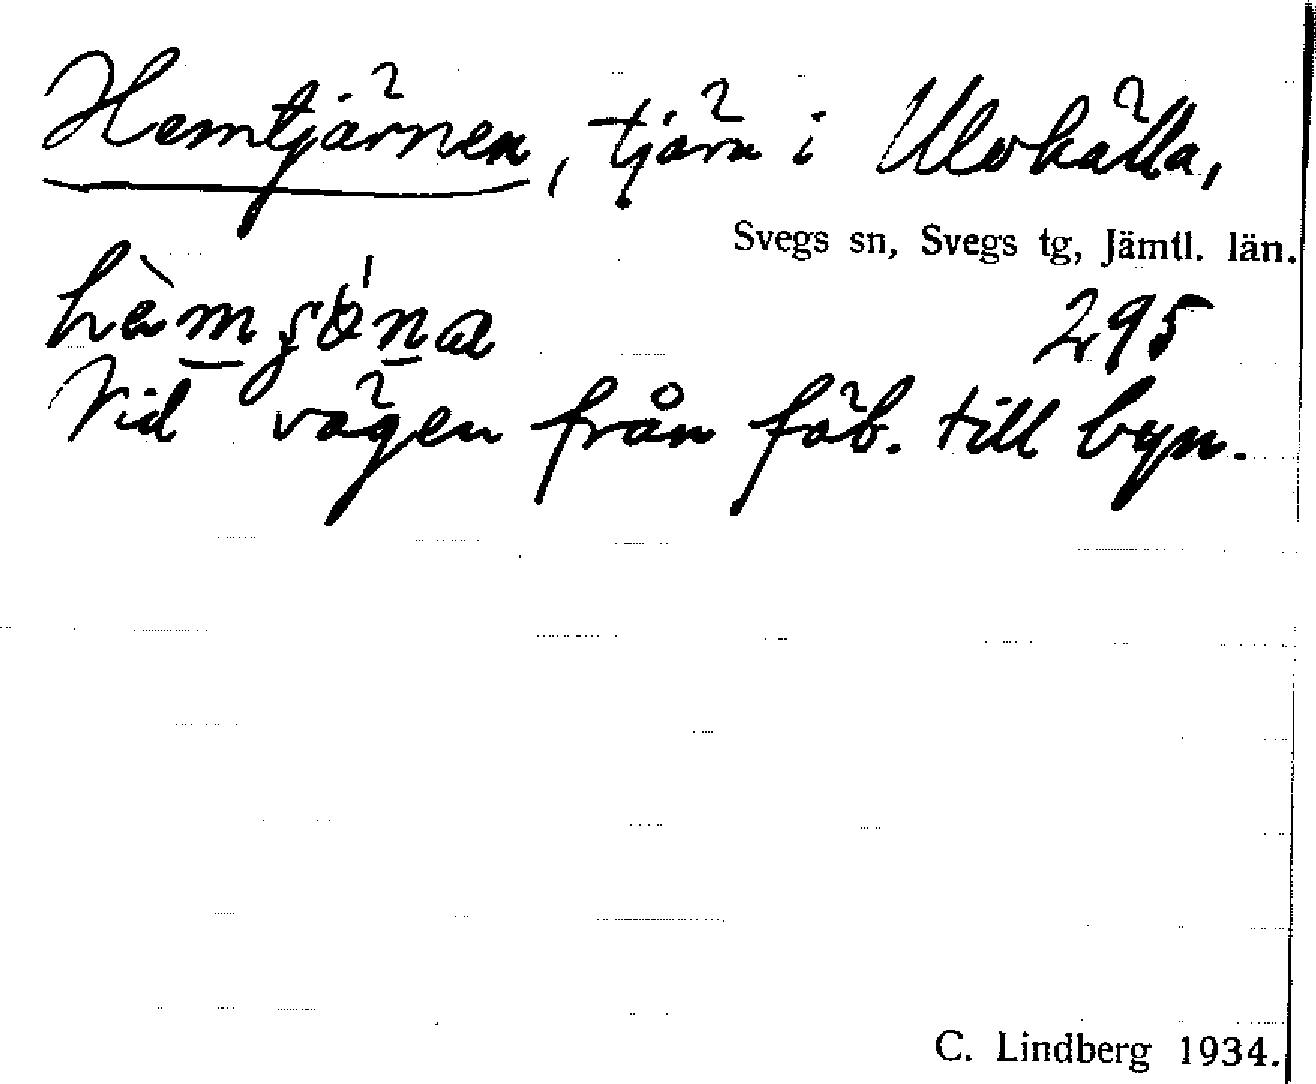 Hemtjärnen, tjärn i Ulvkälla,
Svegs sn, Svegs tg, Jämtl. län.
295
Vid vägen från fäb. till byn.
C. Lindberg 1934.